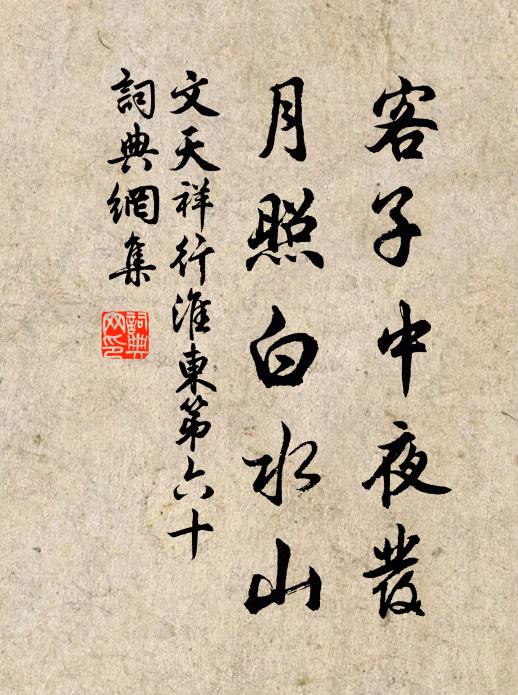 客子中夜發
月照白水山
文天祥行淮東第六十
詞典網集
詞典網印